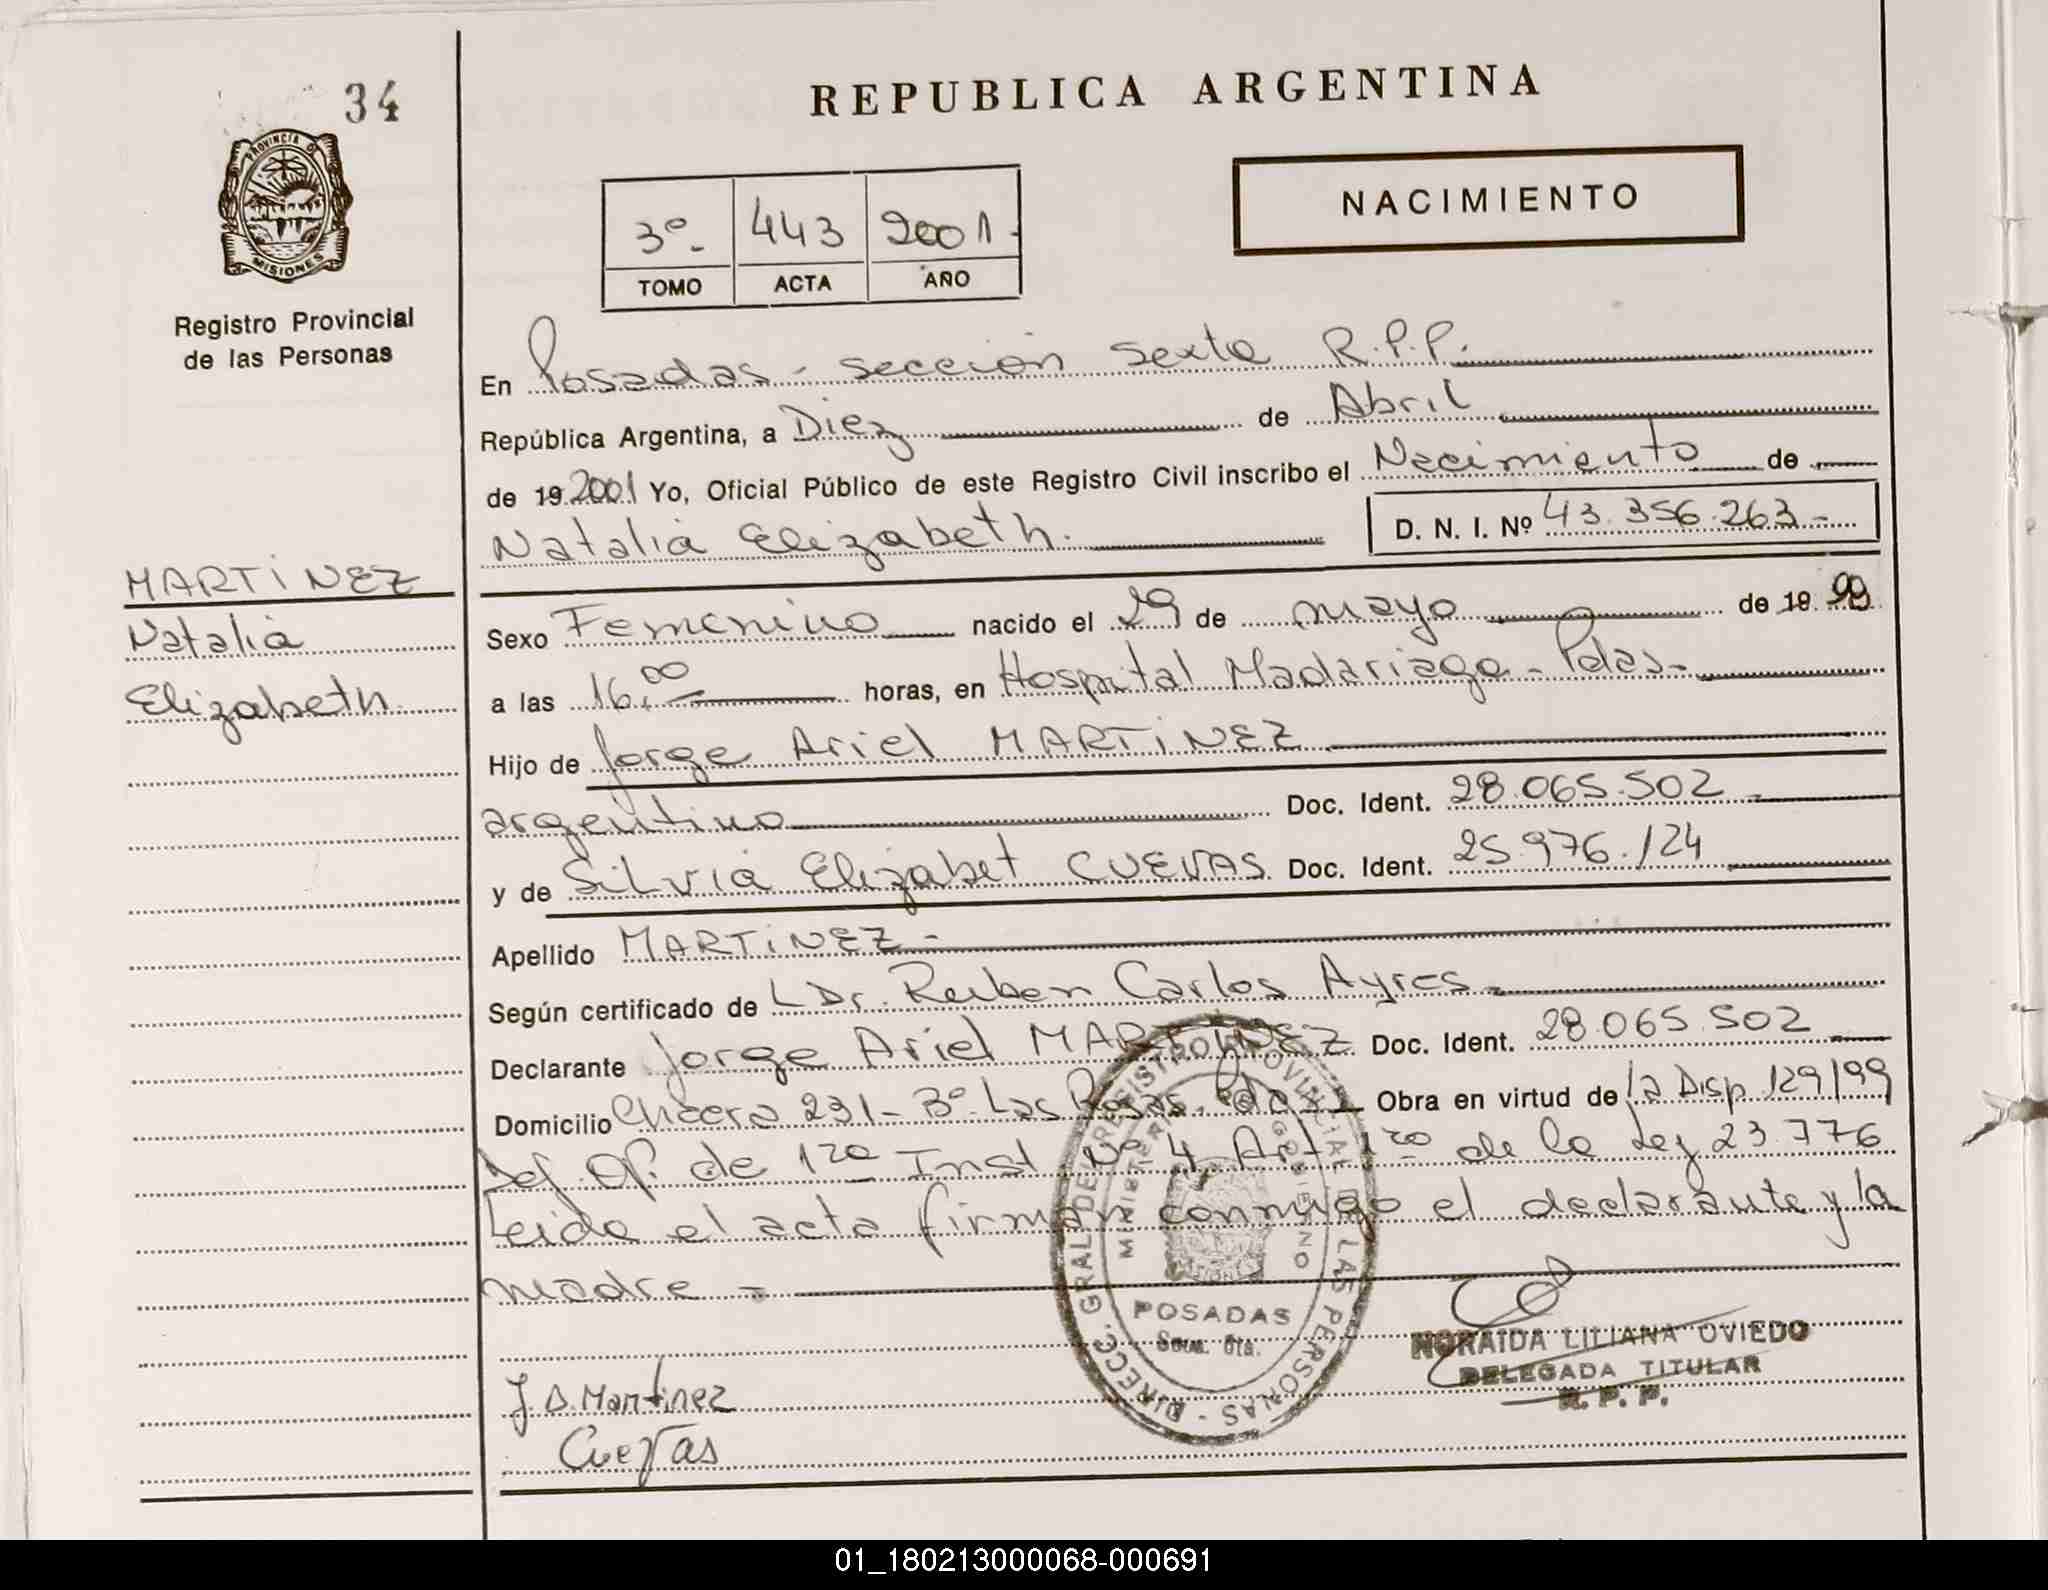 34
REPUBLICA ARGENTINA
PROVINCIA DE
MISIONES
Registro Provincial
de las Personas
3º- 443 2001.
TOMO ACTA AÑO
NACIMIENTO
En Posadas - sección sexta R.P.P.
República Argentina, a Diez de Abril
de 19 2001 Yo, Oficial Público de este Registro Civil inscribo el Nacimiento de
Natalia Elizabeth. D. N. I. Nº 43.356.263-
MARTINEZ
Natalia
Elizabeth
Sexo Femenino nacido el 29 de mayo de 19
a las 16,00 horas, en Hospital Madariaga - Pdas-
Hijo de Jorge Ariel MARTINEZ
argentino Doc. Ident. 28.065.502
y de Silvia Elizabet CUEVAS Doc. Ident. 25.976.124
Apellido MARTINEZ-
Según certificado de Dr. Ruben Carlos Ayres
Declarante Jorge Ariel MARTINEZ Doc. Ident. 28.065.502
Domicilio Chacra 231- Bº Las Rosas. Pdas. Obra en virtud de la Disp. 129/99
Def. Of. de 1ra Inst Nº 4 Art 1ro de la Ley 23.776
Leida el acta firman conmigo el declarante y la
madre -
DIRECC. GRAL. DEL REGISTRO PROVINCIAL DE LAS PERSONAS -
MINISTERIO GOBIERNO
MISIONES
POSADAS
6ta.
J. A. Martinez
Cuevas
NORAIDA LILIANA OVIEDO
DELEGADA TITULAR
R. P. P.
01_180213000068-000691